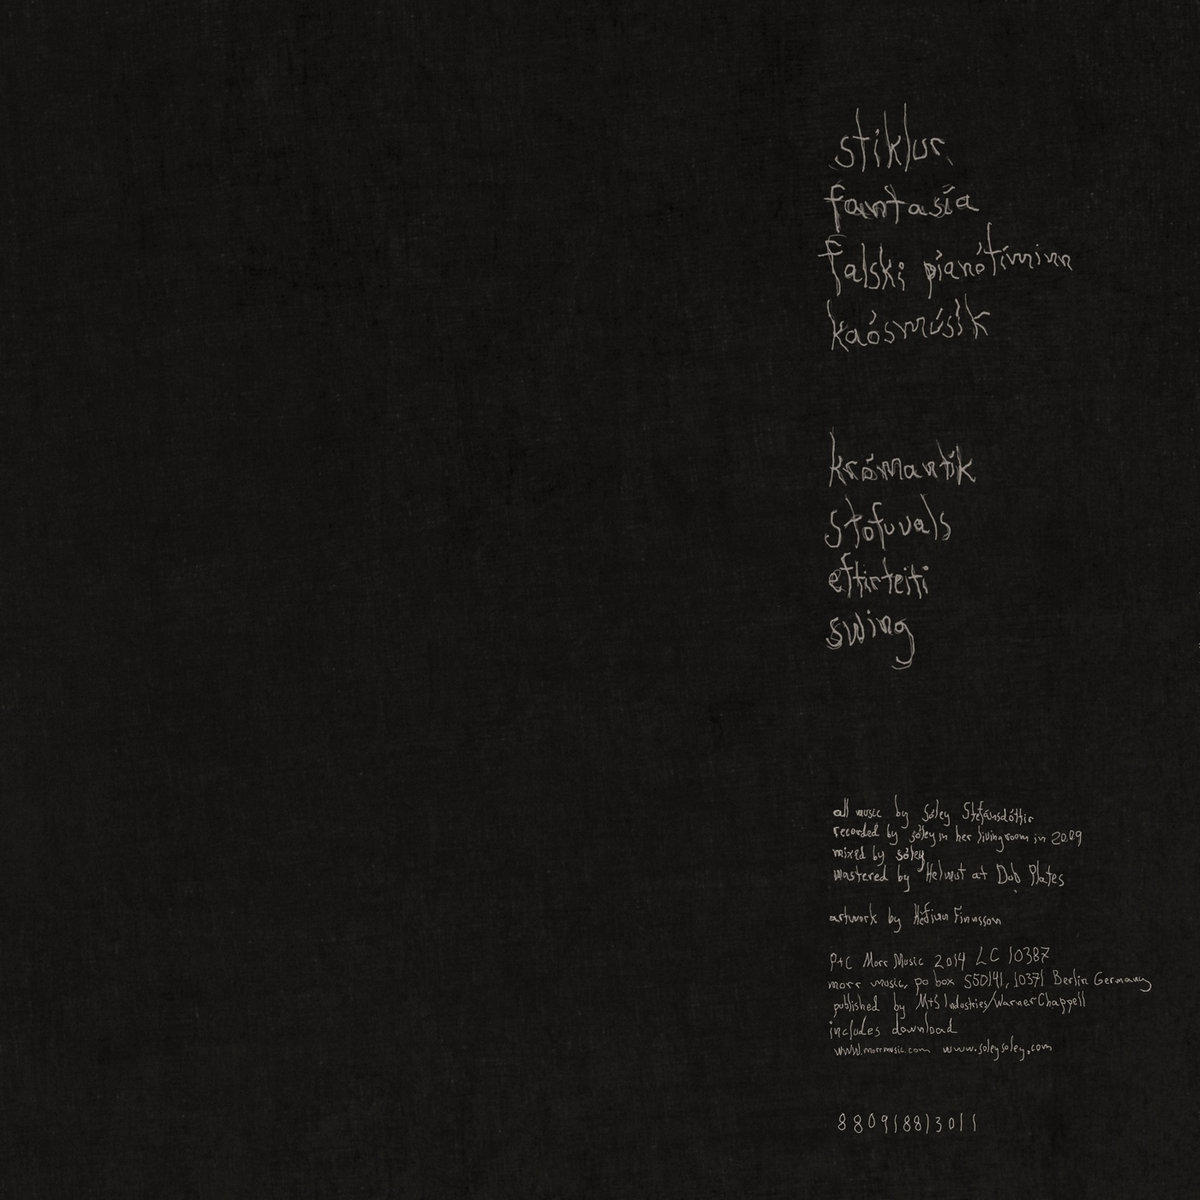 stiklur
fantasía
falski píanótíminn
kaósmúsík
krómantík
stofuvals
eftirteiti
swing
all music by Sóley Stefánsdóttir
recorded by sóley in her livingroom in 2009
mixed by sóley
mastered by Helmut at Dub Plates
artwork by Héðinn Finnsson
P+C Morr Music 2014 LC 10387
morr music, po box 550141, 10371 Berlin Germany
published by M+S Industries/Warner Chappell
includes download
www.morrmusic.com www.soleysoley.com
880918813011